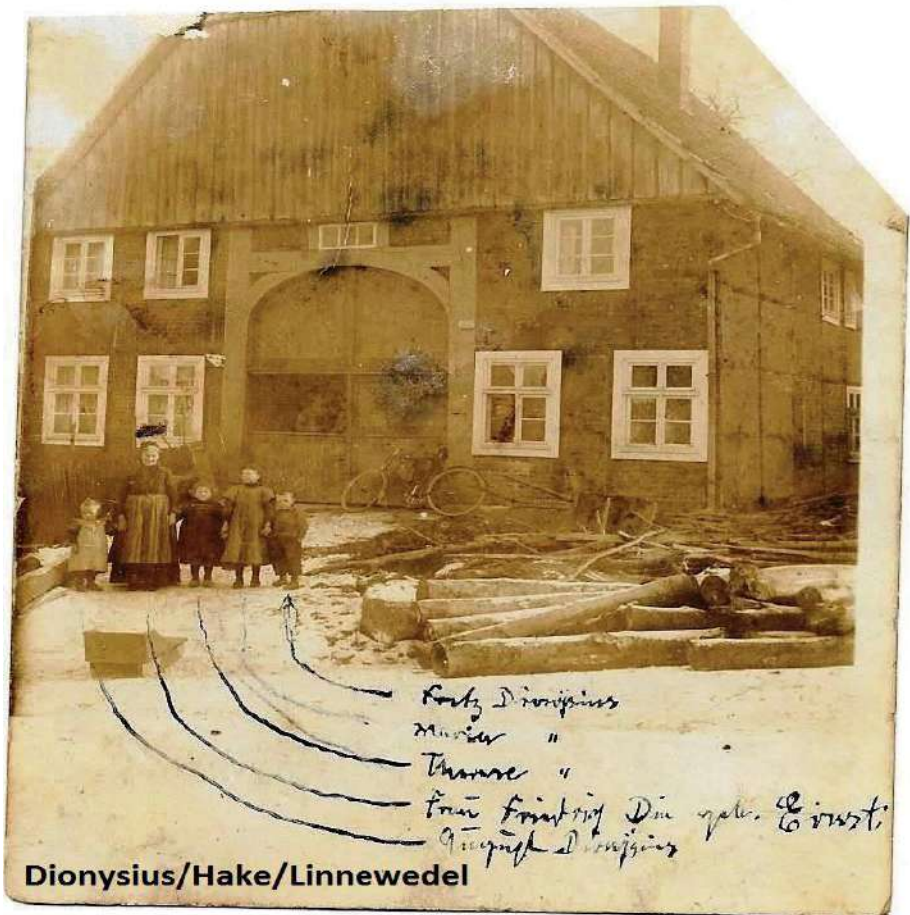 Fritz Dionysius
Maria "
Therese "
Frau Friedrich Dio geb. Ernst.
August Dionysius
Dionysius/Hake/Linnewedel